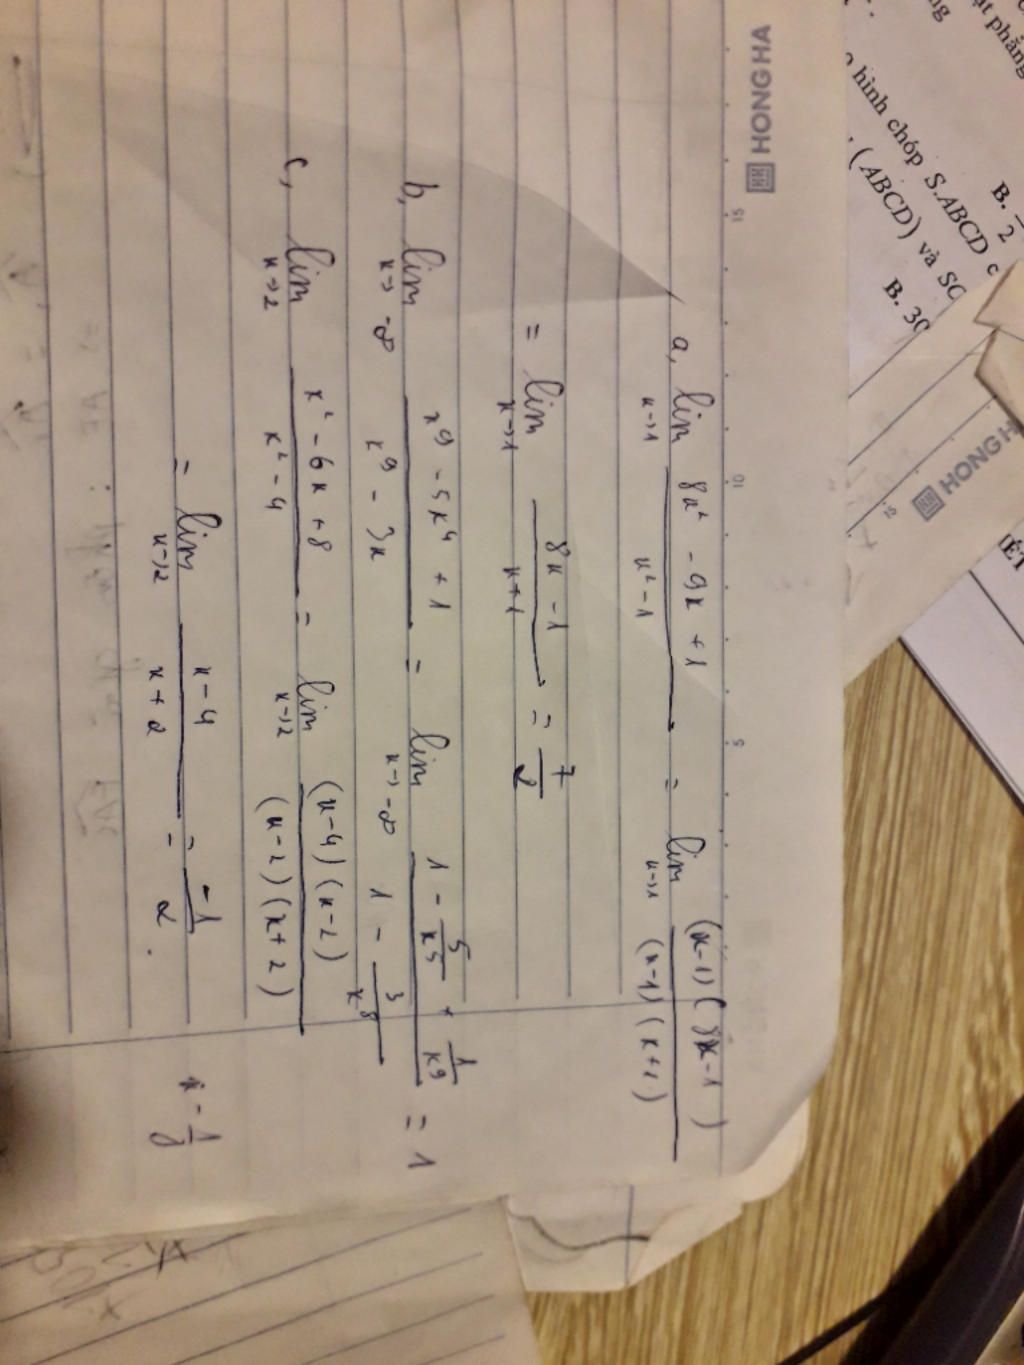 HONG HA
15 10 5
a, lim x→1 8x² - 9x + 1 / x² - 1 = lim x→1 (x-1)(8x-1) / (x-1)(x+1)
= lim x→1 8x - 1 / x+1 = 7/2
b, lim x→ -∞ x⁹ - 5x⁴ + 1 / x⁹ - 3x = lim x→ -∞ 1 - 5/x⁵ + 1/x⁹ / 1 - 3/x⁸ = 1
c, lim x→2 x² - 6x + 8 / x² - 4 = lim x→2 (x-4)(x-2) / (x-2)(x+2)
= lim x→2 x-4 / x+2 = -1/2.
hình chóp S.ABCD c
(ABCD) và SC
B. 30
B.
2
ặt phẳng
HONG H
15